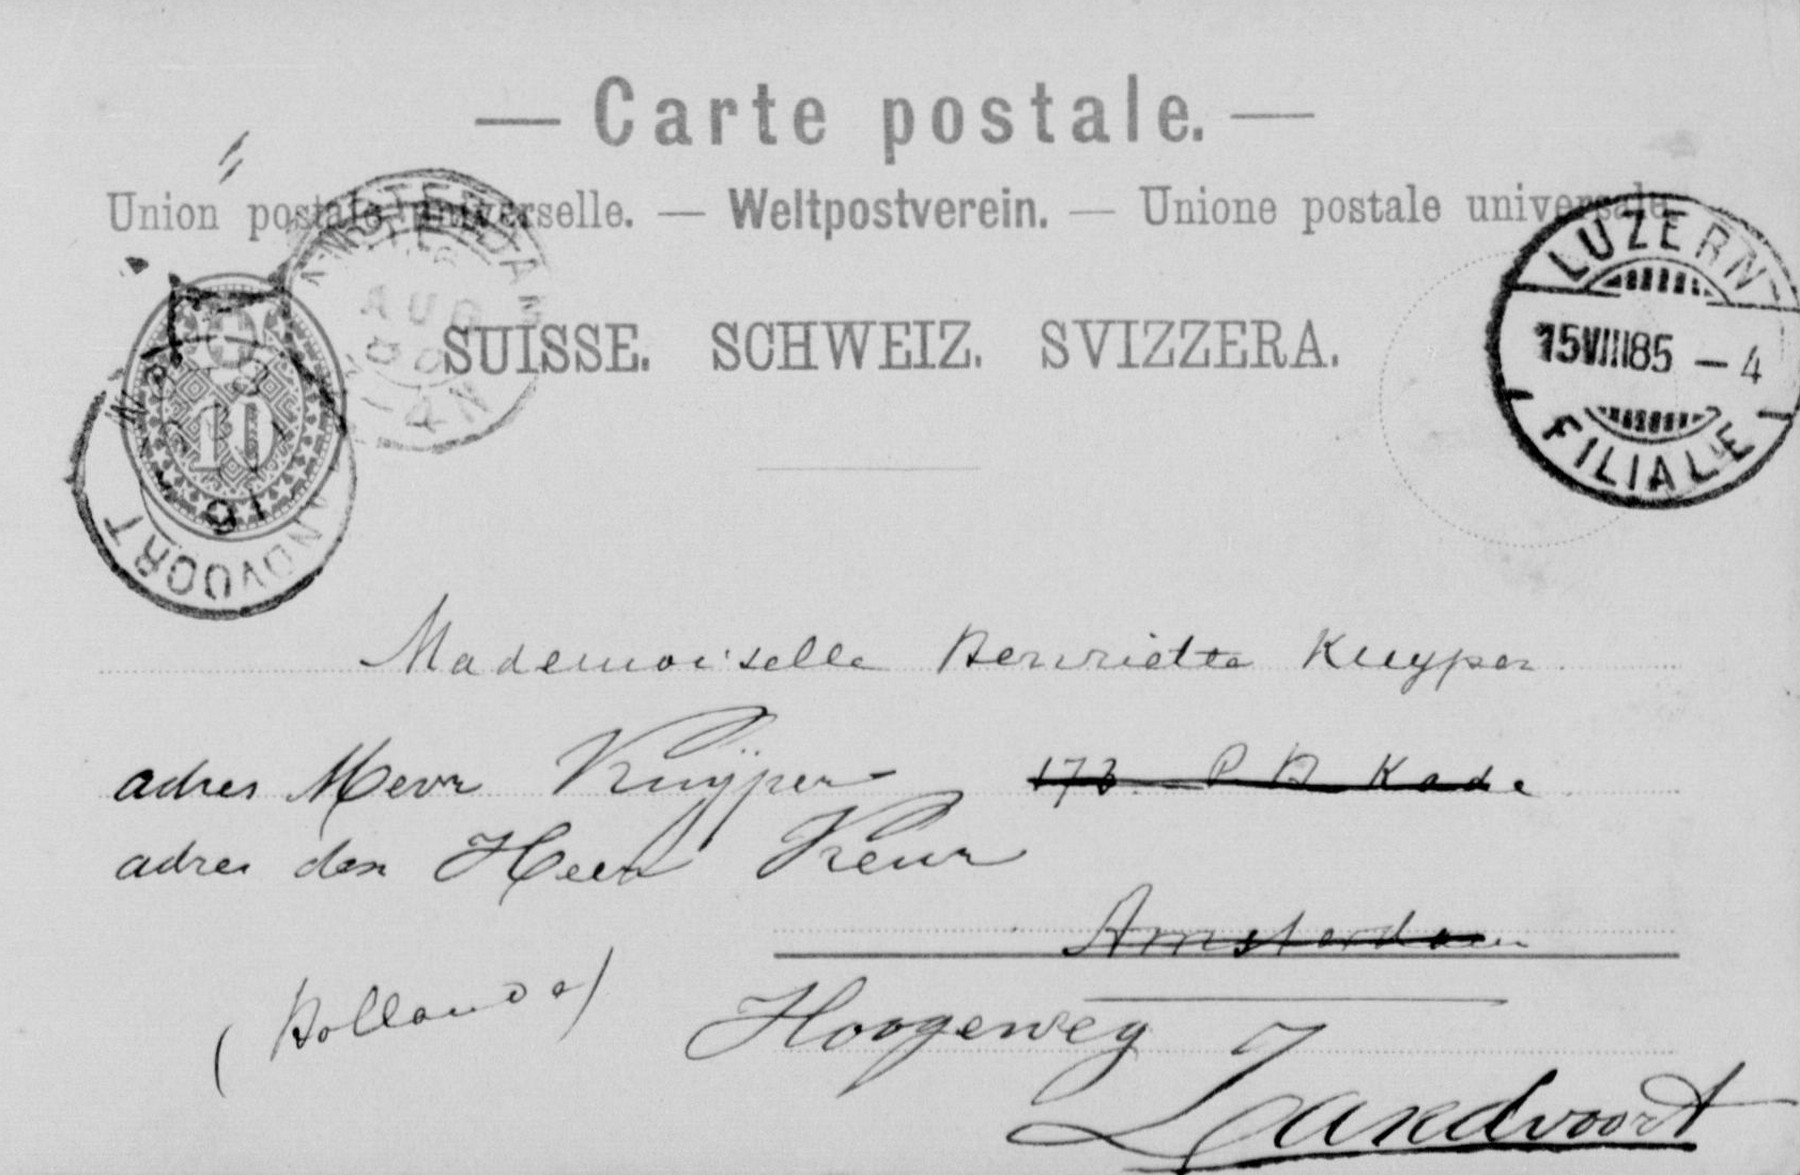 — Carte postale. —
Union postale universelle. — Weltpostverein. — Unione postale universale.
AMSTERDAM
AUG
SUISSE. SCHWEIZ. SVIZZERA.
LUZERN
15VIII85 – 4
FILIALE
10
ZANDVOORT
Mademoiselle Henriette Kuyper
adres Mevr Kuijper 173 P H Kade
adres den Heer Keur
Amsterdam
(Hollande)
Hoogeweg 7
Zandvoort